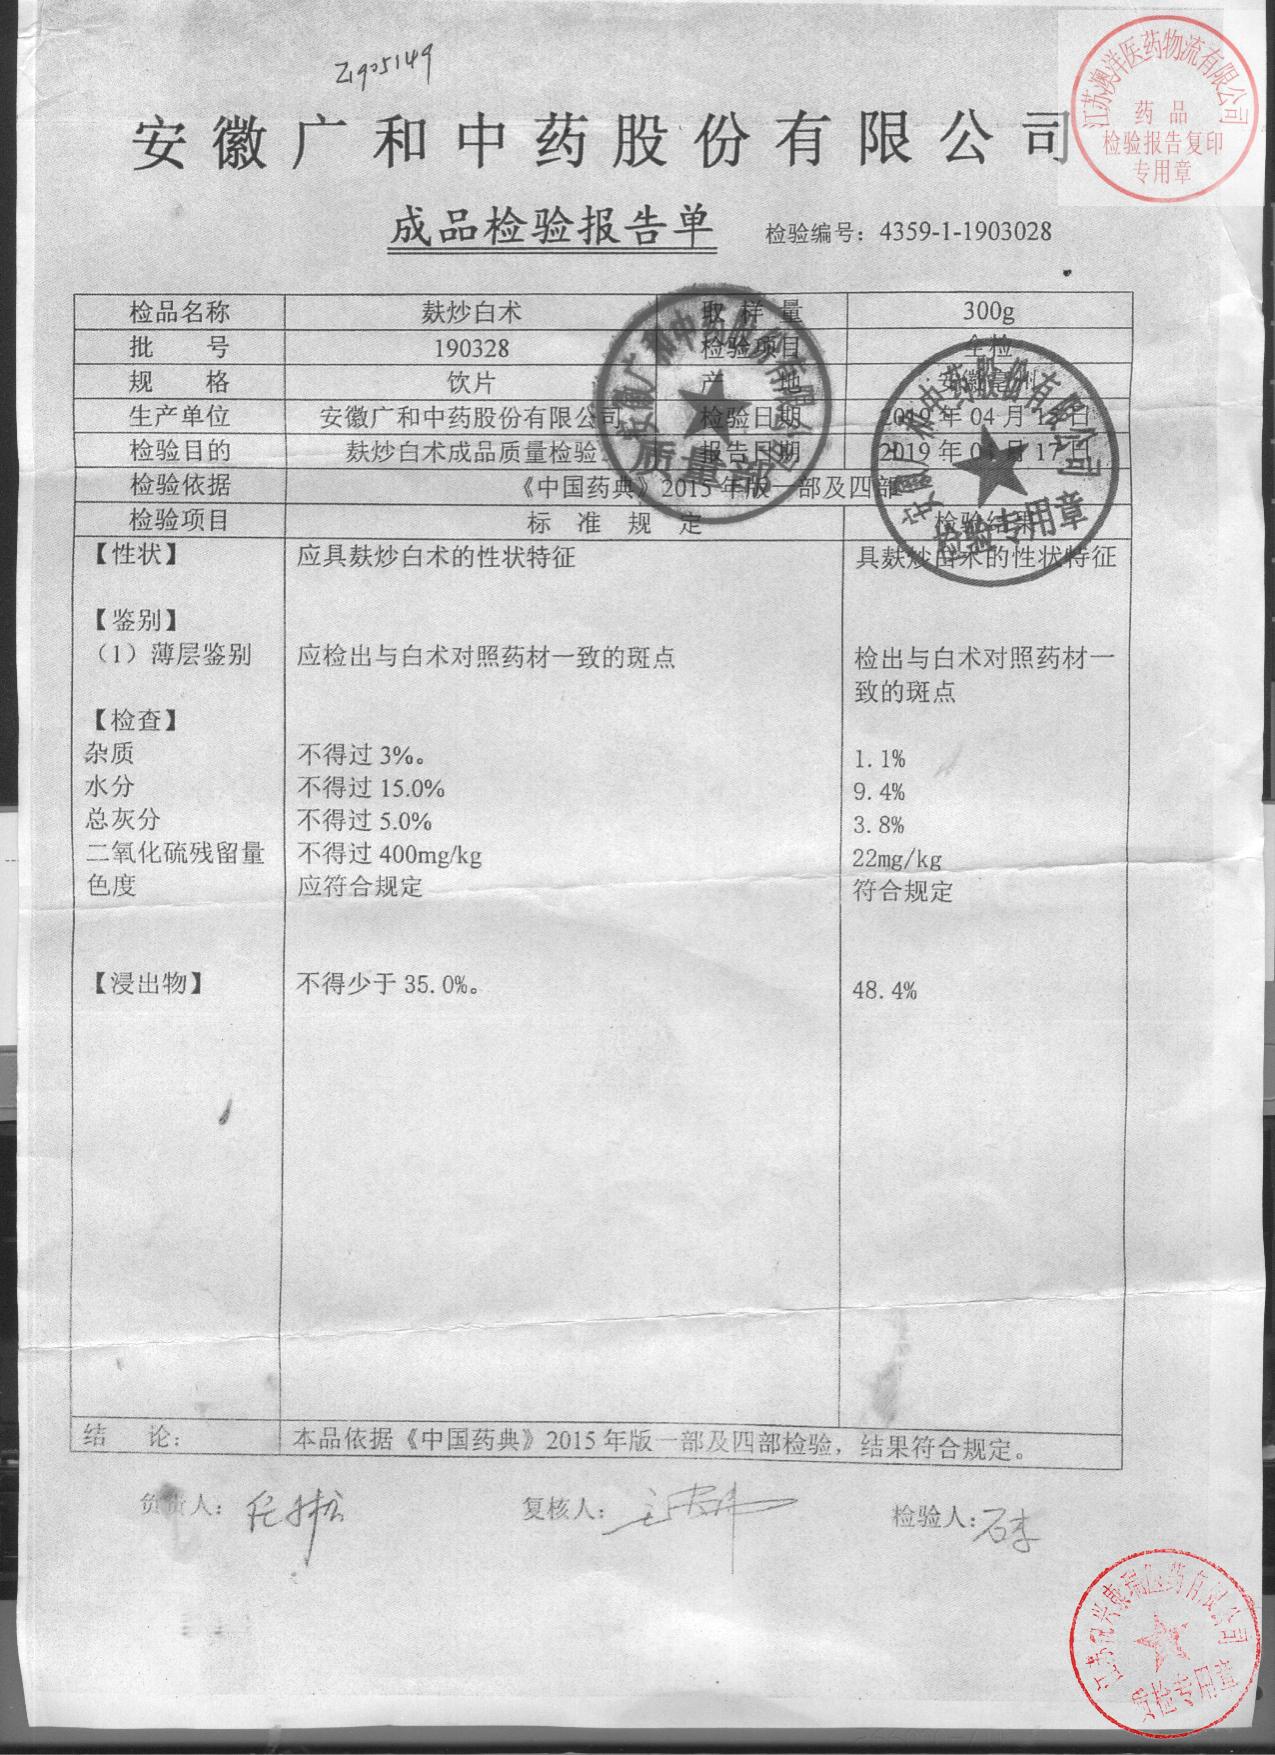 Z1905149
安徽广和中药股份有限公司
江苏澳洋医药物流有限公司
药品
检验报告复印
专用章
成品检验报告单 检验编号：4359-1-1903028
检品名称 麸炒白术 取样量 300g
批号 190328 检验项目 全检
规格 饮片 产地 安徽亳州
生产单位 安徽广和中药股份有限公司 检验日期 2019年04月
检验目的 麸炒白术成品质量检验 报告日期 2019年04月17日
检验依据 《中国药典》2015年版一部及四部
检验项目 标准规定 检验结果
安徽广和中药股份有限公司
质量部
安徽广和中药股份有限公司
检验专用章
【性状】 应具麸炒白术的性状特征 具麸炒白术的性状特征
【鉴别】
（1）薄层鉴别 应检出与白术对照药材一致的斑点 检出与白术对照药材一
致的斑点
【检查】
杂质 不得过3%。 1.1%
水分 不得过15.0% 9.4%
总灰分 不得过5.0% 3.8%
二氧化硫残留量 不得过400mg/kg 22mg/kg
色度 应符合规定 符合规定
【浸出物】 不得少于35.0%。 48.4%
结论： 本品依据《中国药典》2015年版一部及四部检验，结果符合规定。
负责人： 复核人： 检验人：石李
质检专用章